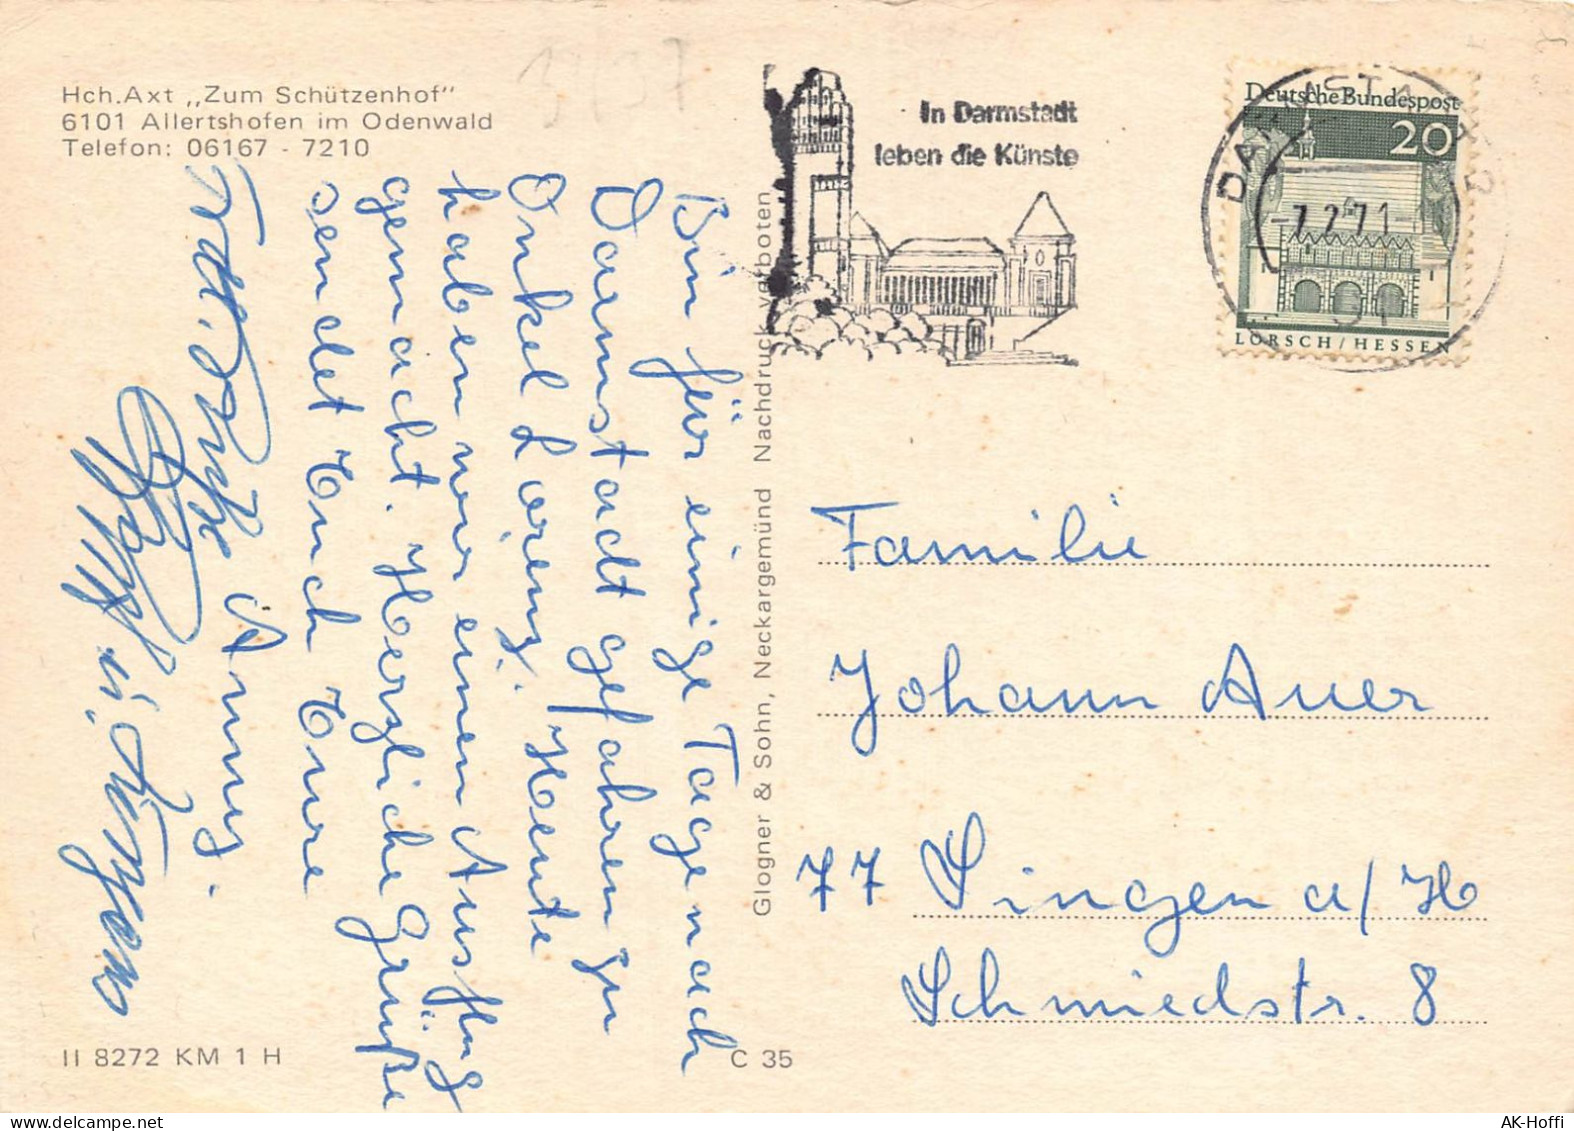 Hch.Axt „Zum Schützenhof"
6101 Allertshofen im Odenwald
Telefon: 06167 - 7210
In Darmstadt
leben die Künste
Deutsche Bundespost
20
LORSCH/HESSEN
DARMSTADT 2
-7.2.71-
61
Bin für einige Tage nach
Darmstadt gefahren zu
Onkel Lorenz. Heute
haben wir einen Ausflug
gemacht. Herzliche Grüße
sendet Euch Eure
Anny.
Glogner & Sohn, Neckargemünd Nachdruck verboten
Familie
Johann Auer
77 Singen a/H
Schmiedstr. 8
II 8272 KM 1 H
C 35
AK-Hoffi